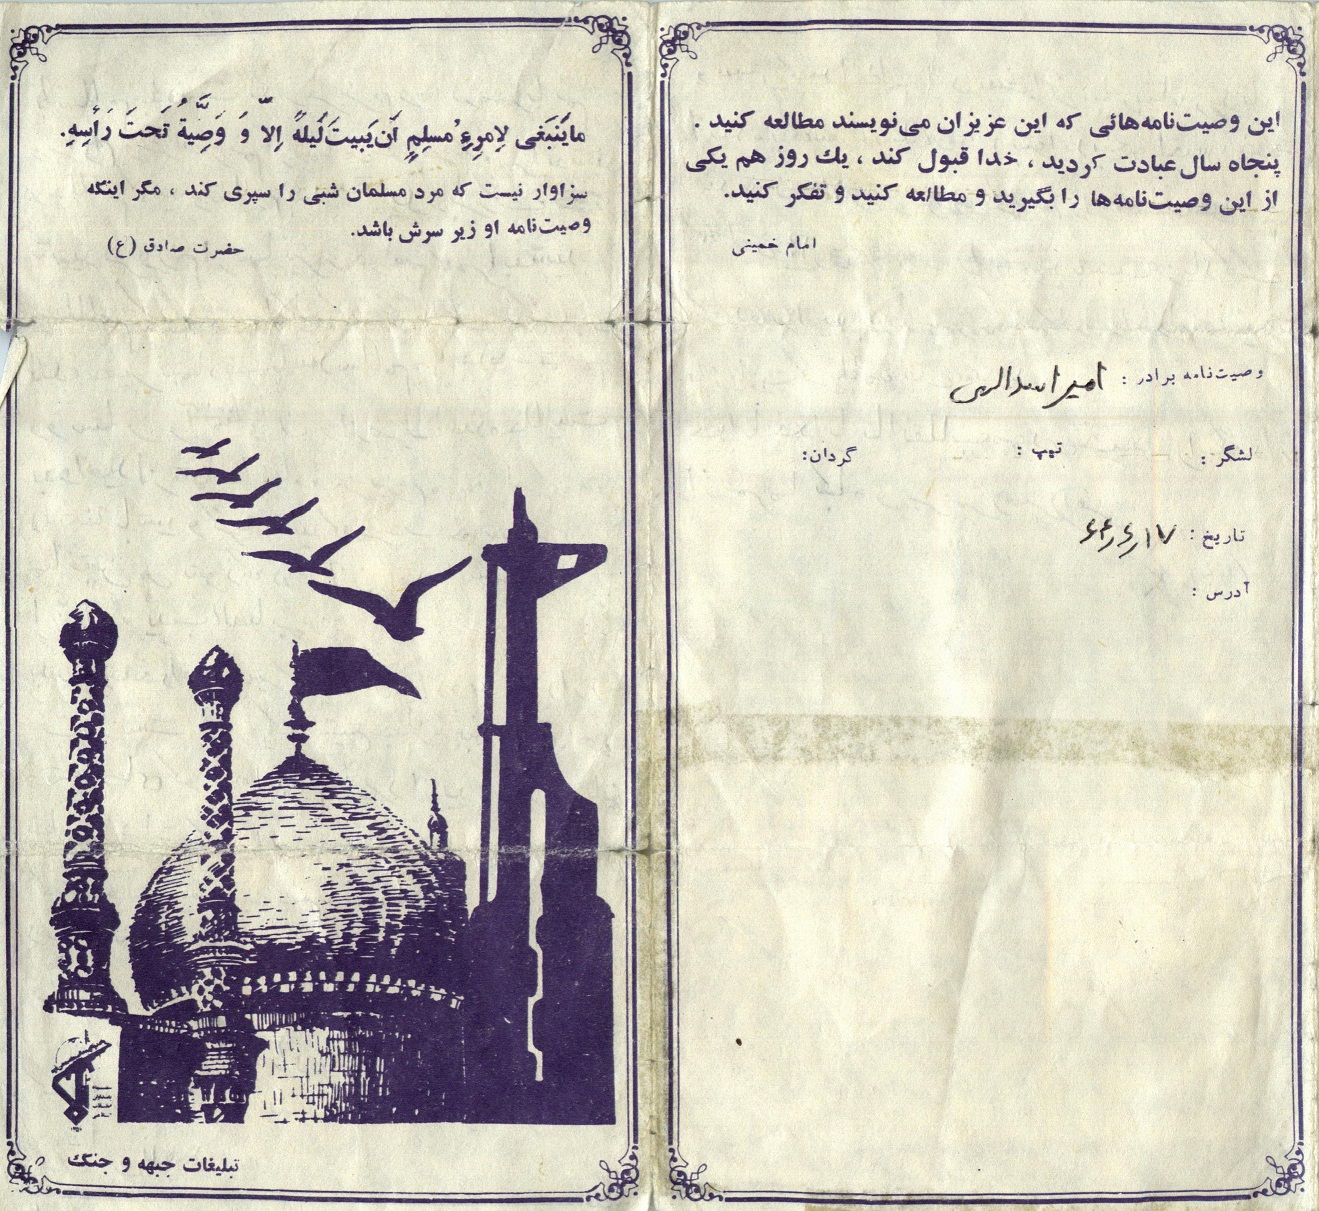 این وصیت‌نامه‌هائی که این عزیزان می‌نویسند مطالعه کنید .
پنجاه سال عبادت کردید ، خدا قبول کند ، یك روز هم یکی
از این وصیت‌نامه‌ها را بگیرید و مطالعه کنید و تفکر کنید.
امام خمینی
وصیت‌نامه برادر : امیر اسدالهی
لشگر : تیپ : گردان:
تاریخ : ۶۴٫۶٫۱۷
آدرس :
ما یَنبَغی لِامرِءٍ مُسلِمٍ اَن یَبیتَ لَیلَهً اِلاّ وَ وَصِّیَهُ تَحتَ رَأسِهِ.
سزاوار نیست که مرد مسلمان شبی را سپری کند ، مگر اینکه
وصیت‌نامه او زیر سرش باشد.
حضرت صادق (ع)
تبلیغات جبهه و جنگ